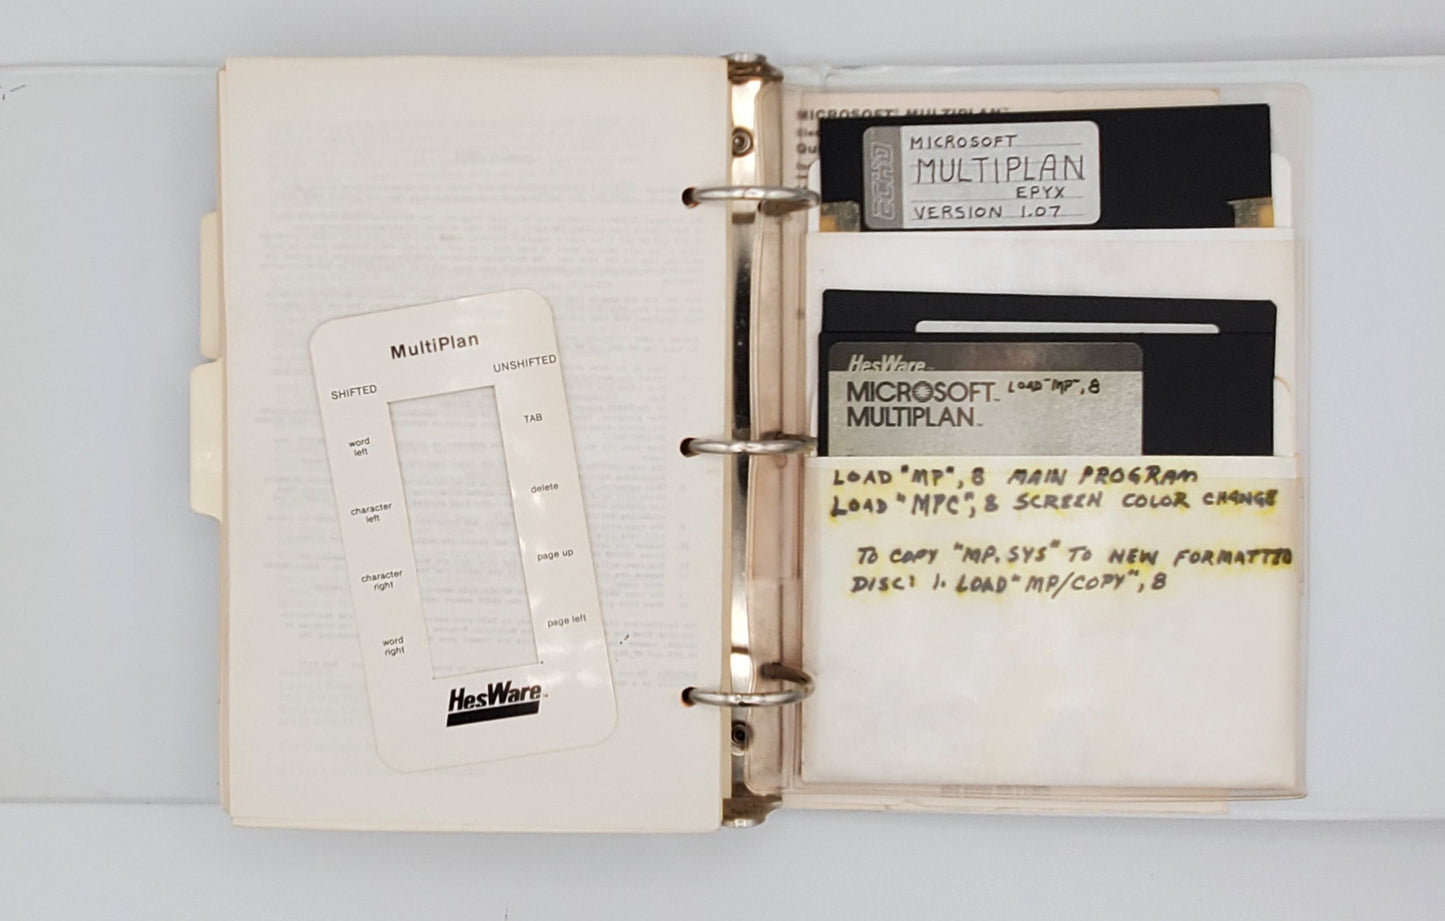 MultiPlan
SHIFTED
UNSHIFTED
word
left
TAB
character
left
delete
character
right
page up
word
right
page left
HesWare™
MICROSOFT® MULTIPLAN™
MICROSOFT
MULTIPLAN
EPYX
VERSION 1.07
HesWare™
MICROSOFT™ LOAD "MP",8
MULTIPLAN™
LOAD "MP", 8 MAIN PROGRAM
LOAD "MPC", 8 SCREEN COLOR CHANGE
TO COPY "MP.SYS" TO NEW FORMATTED
DISC: 1. LOAD "MP/COPY", 8